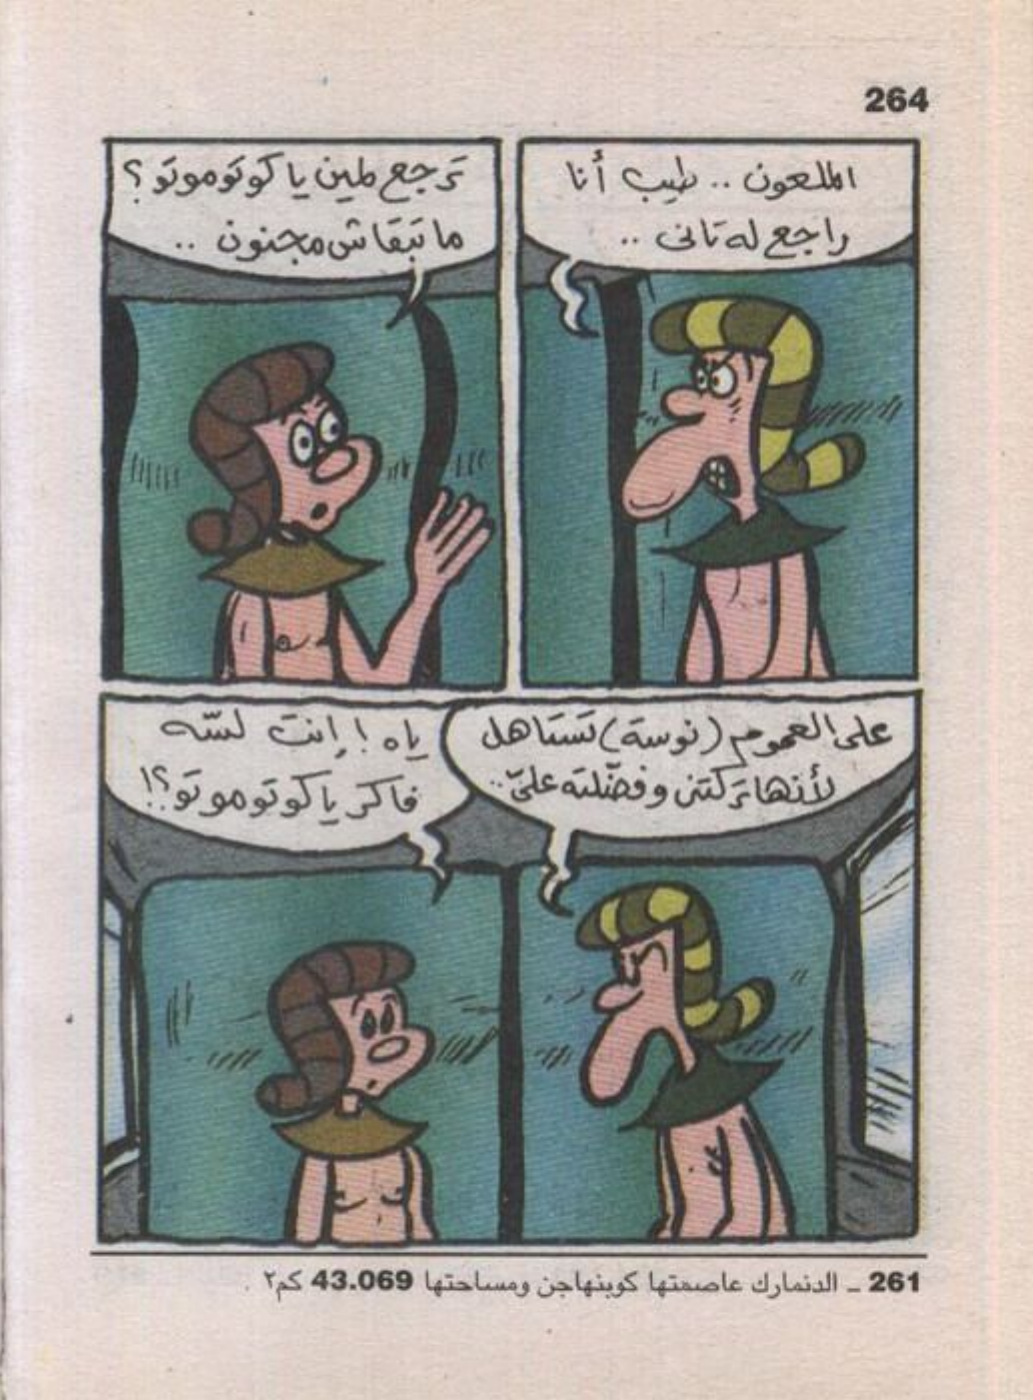 264
الملعون .. طيب أنا
راجع له تانى ..
تَرجع لمين يا كوتوموتو ؟
ما تبقاش مجنون ..
على العموم (نوسة) تستاهل
لأنها تركتنى وفضّلته علىّ ..
ياه ! إنت لسّه
فاكر يا كوتوموتو ؟!
261 ــ الدنمارك عاصمتها كوبنهاجن ومساحتها 43.069 كم٢ .